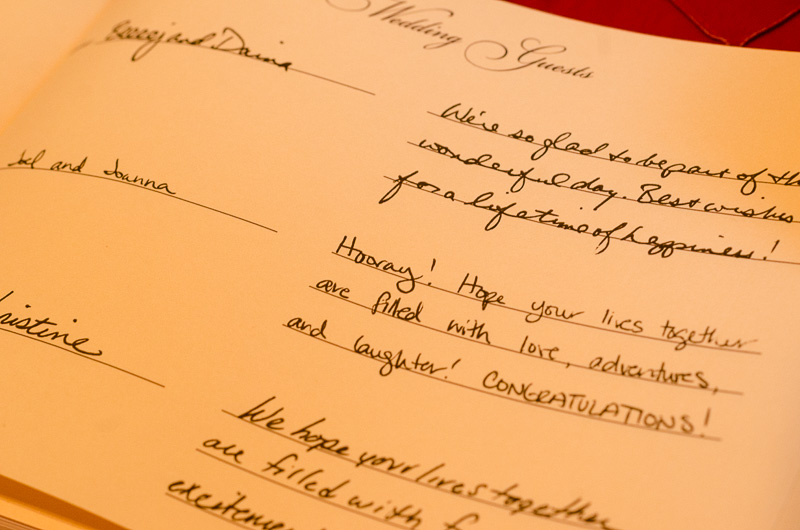 Wedding Guests
and Daina
We're so glad to be part of
wonderful day. Best wishes
for a lifetime of happiness!
and Joanna
Hooray! Hope your lives together
are filled with love, adventures,
and laughter! CONGRATULATIONS!
We hope your lives together
are filled with